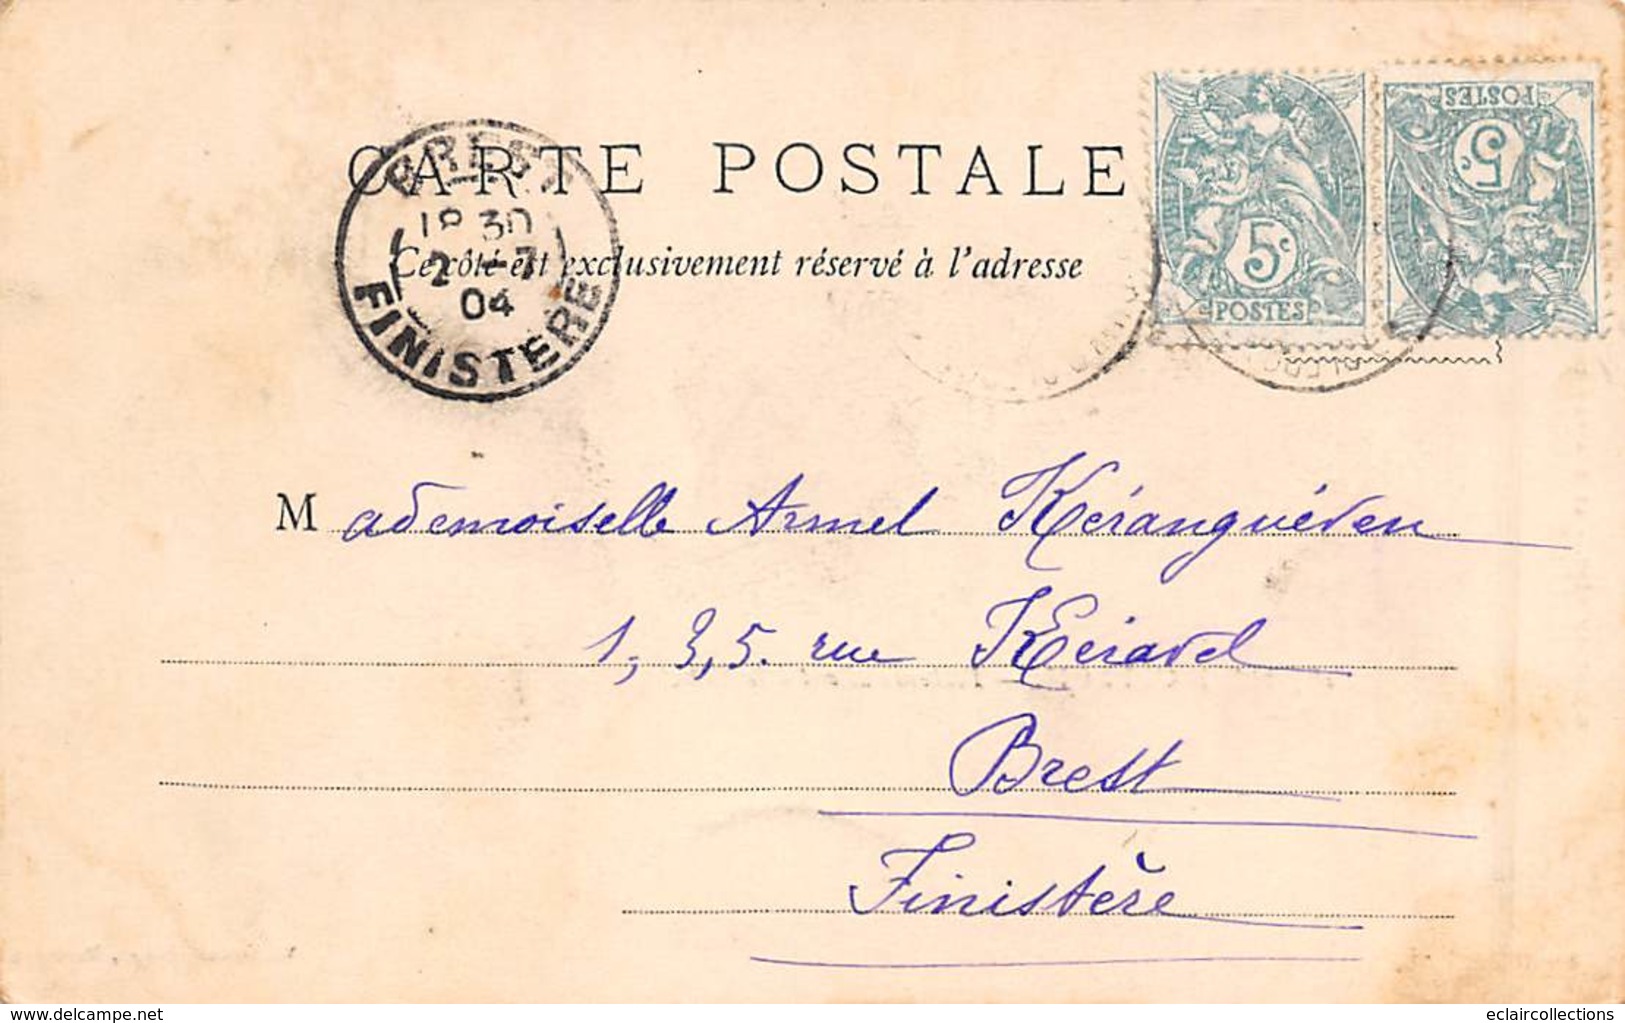 CARTE POSTALE
Ce côté est exclusivement réservé à l'adresse
BREST
18 30
2 -7
04
FINISTERE
5c
POSTES
5c
POSTES
Mademoiselle Armel Kéranguéven
1, 3, 5. rue Kéravel
Brest
Finistère
www.delcampe.net
eclaircollections